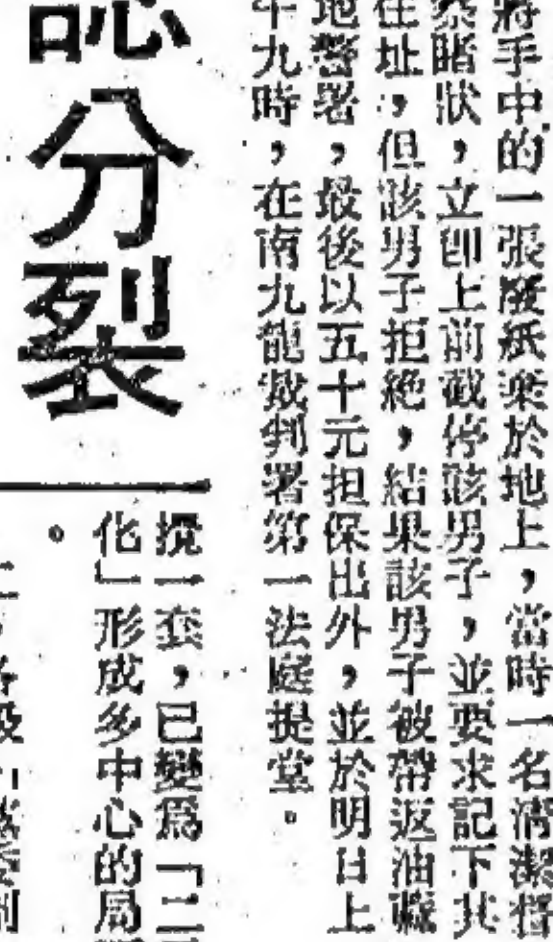 將手中的一張廢紙棄於地上，當時一名清潔督
察睹狀，立即上前截停該男子，並要求記下其
住址，但該男子拒絶，結果該男子被帶返油蔴
地警署，最後以五十元担保出外，並於明日上
午九時，在南九龍裁判署第一法庭提堂。
分裂
攪一套，已變爲「二
化」形成多中心的局
。